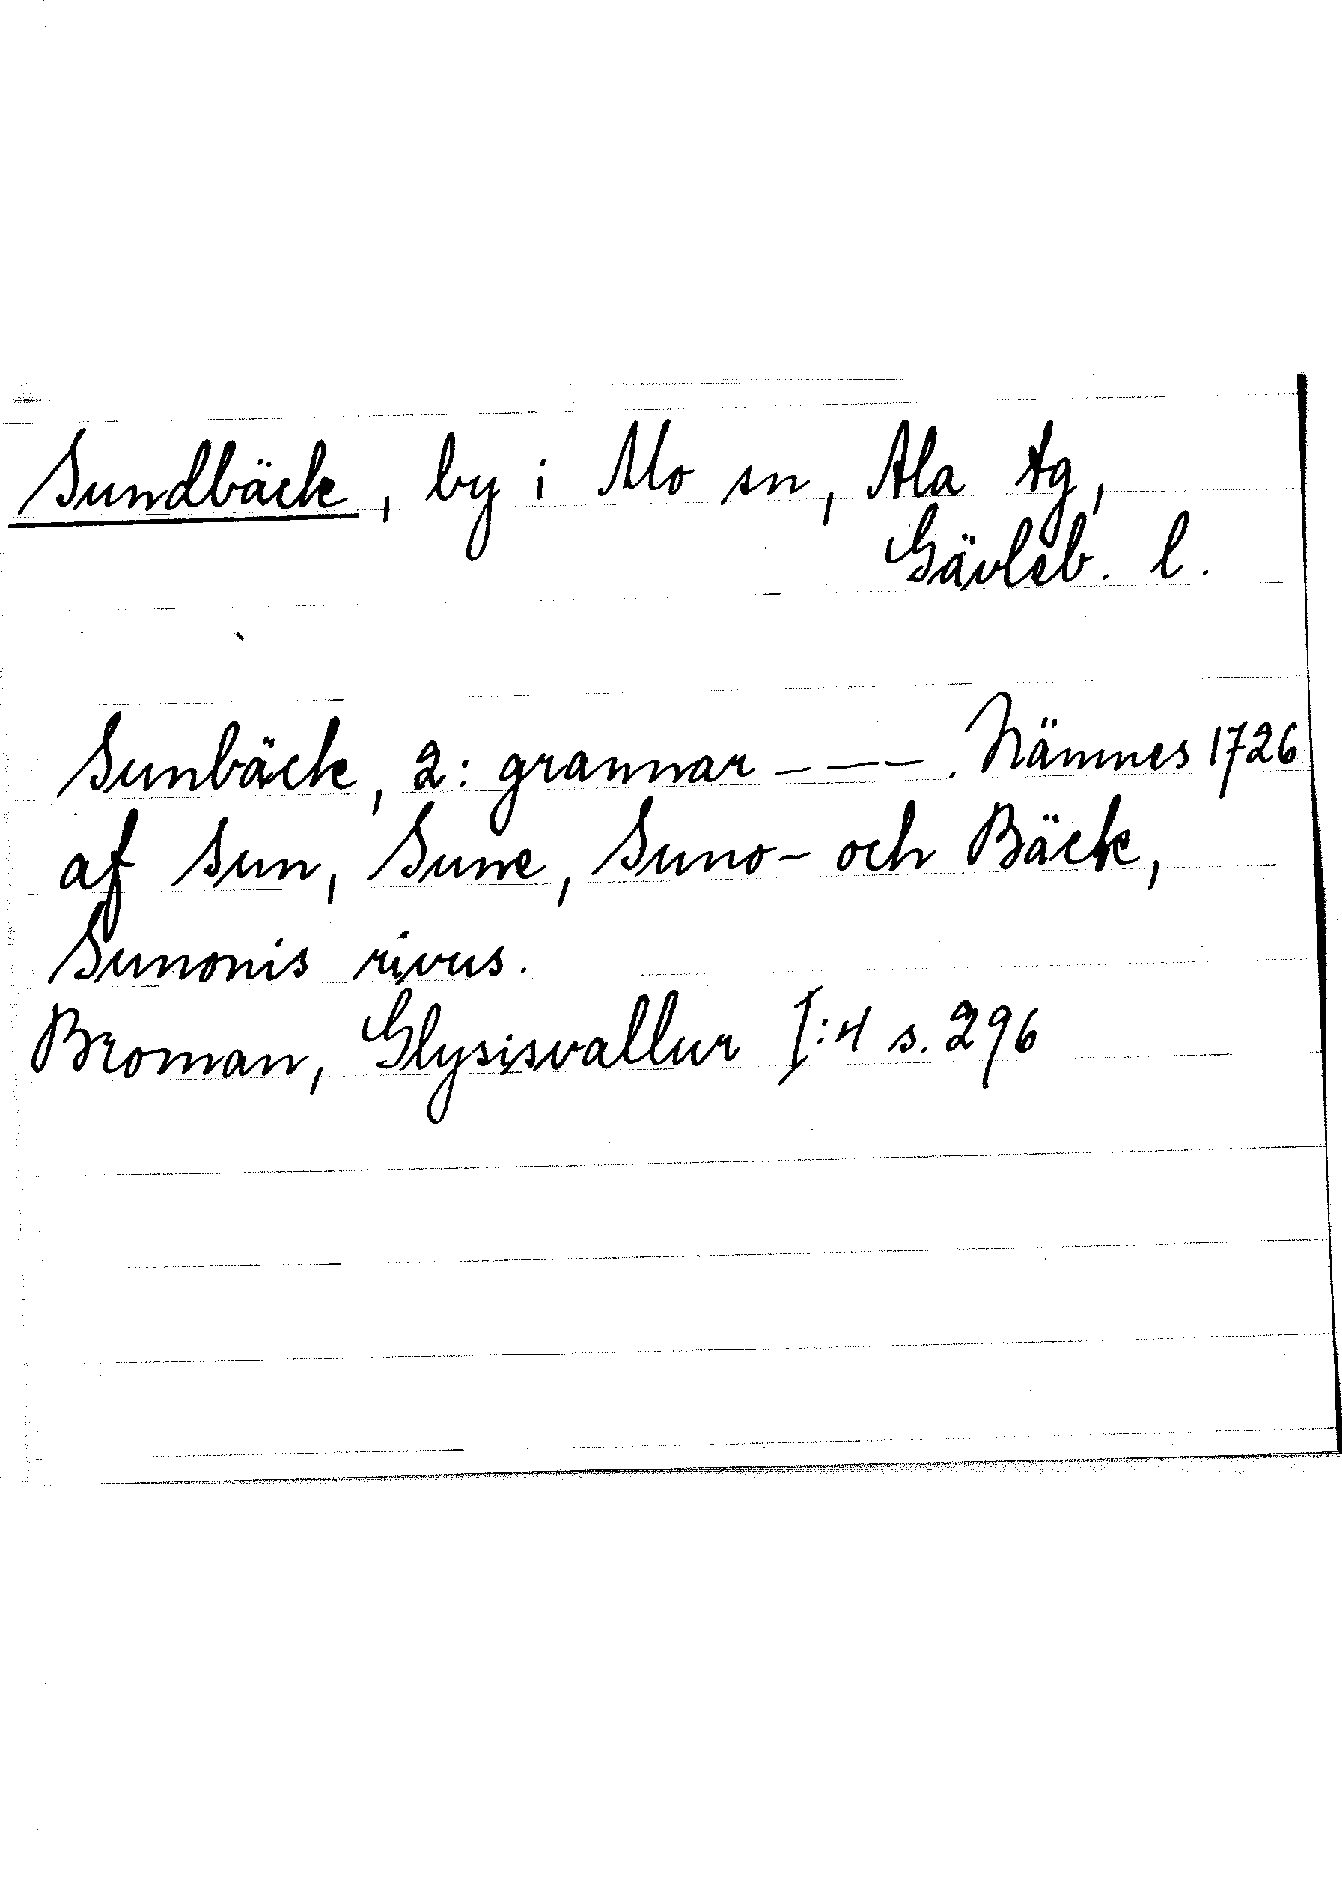 Sundbäck, by i Mo sn, Ala tg,
Gävleb. l.
Sunbäck, 2: grannar – – –. Nämnes 1726
af Sun, Sune, Suno- och Bäck,
Sunonis rivus.
Broman, Glysisvallur I:4 s. 296